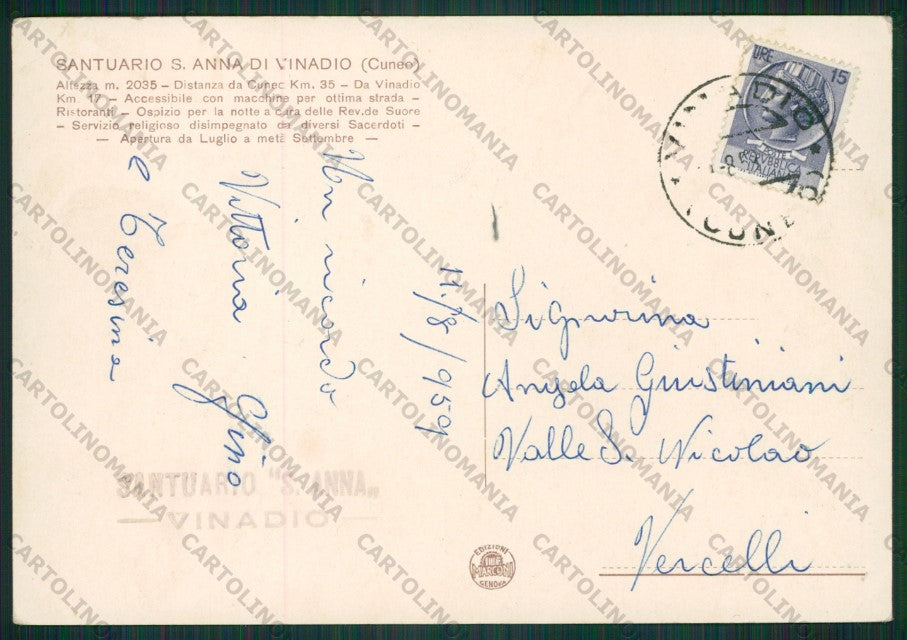 SANTUARIO S. ANNA DI VINADIO (Cuneo)
Altezza m. 2035 – Distanza da Cuneo Km. 35 – Da Vinadio
Km. 17 – Accessibile con macchine per ottima strada –
Ristoranti – Ospizio per la notte a cura delle Rev.de Suore
– Servizio religioso disimpegnato da diversi Sacerdoti –
— Apertura da Luglio a metà Settembre —
LIRE 15
POSTE
REPVBBLICA
ITALIANA
VINADIO
CUNEO
11/8/959
Un ricordo
Vittoria Gino
e Teresina
Signorina
Angela Giustiniani
Valle S. Nicolao
Vercelli
SANTUARIO "S. ANNA"
— VINADIO —
EDIZIONI
MARCONI
GENOVA
CARTOLINOMANIA